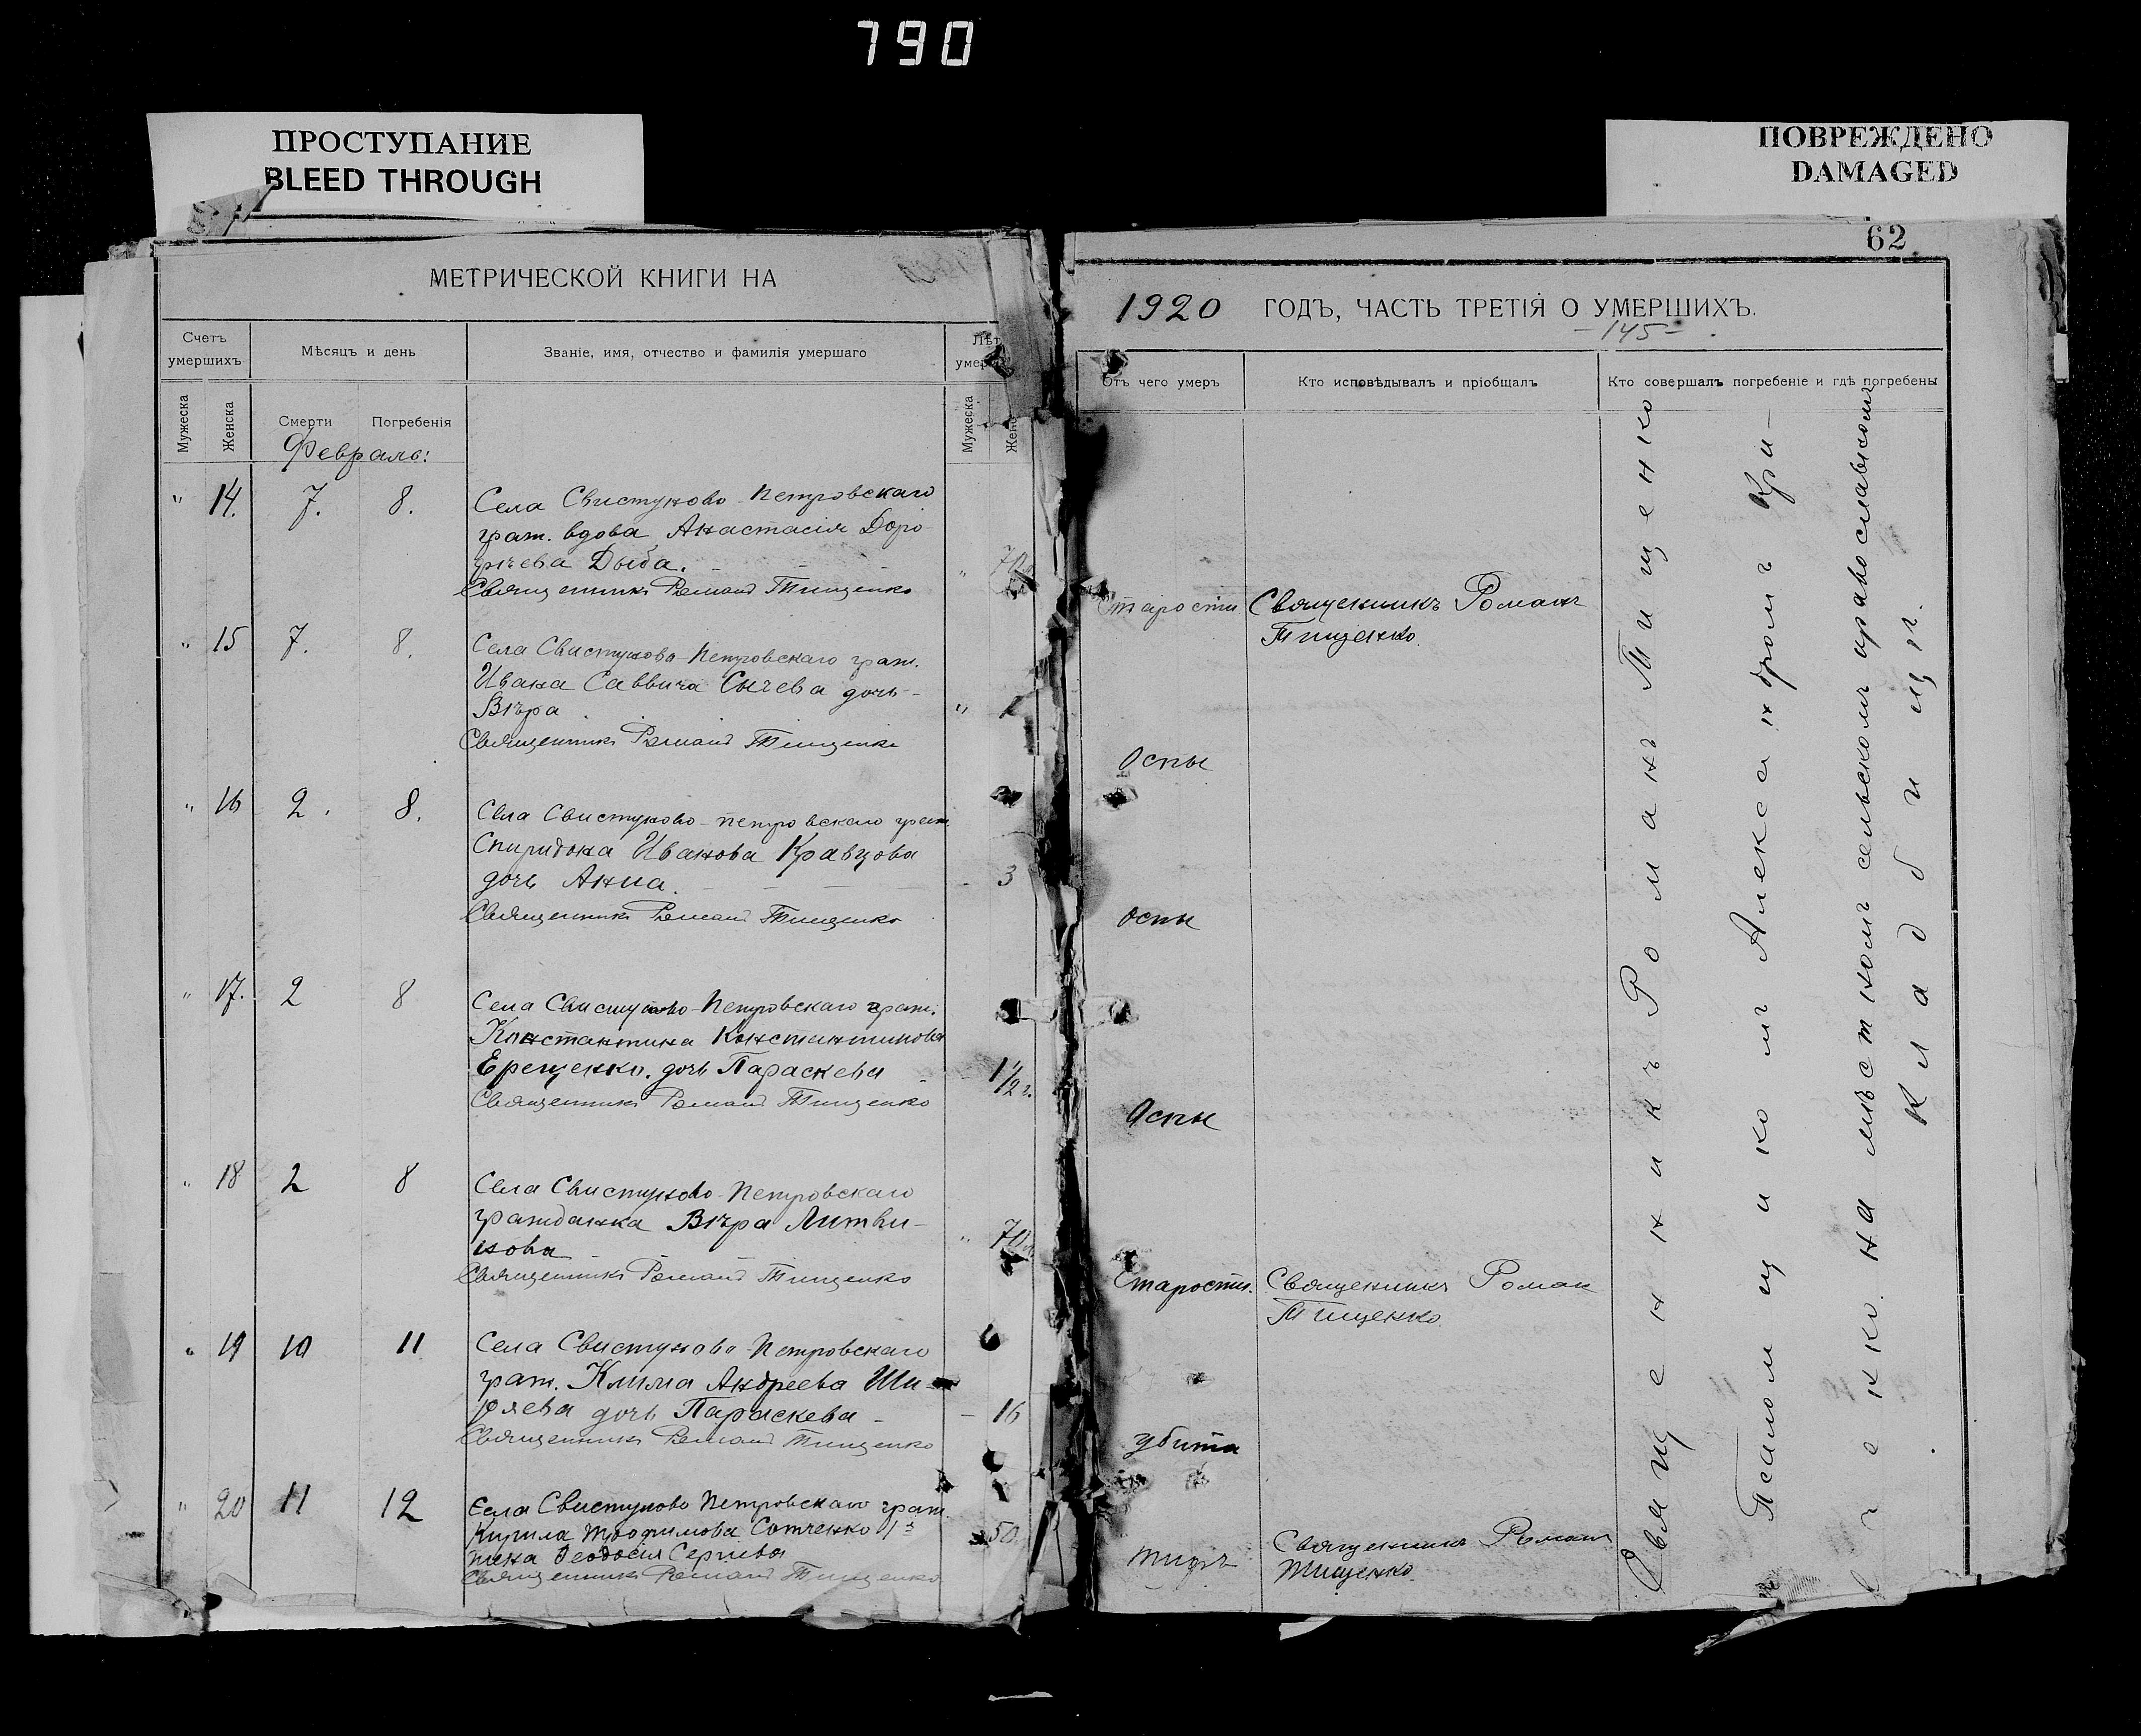 790
ПРОСТУПАНИЕ
BLEED THROUGH
ПОВРЕЖДЕНО
DAMAGED
МЕТРИЧЕСКОЙ КНИГИ НА
Счетъ умершихъ
Мѣсяцъ и день
Званіе, имя, отчество и фамилія умершаго
Лѣт
уме
Мужеска
Женска
Смерти
Погребенія
Мужеска
Женс
Февраль:
" 14. 7. 8. Села Свистуново-Петровскаго
граж. вдова Анастасія Доро
Дыба. " 70
Священникъ Романъ Тищенко
" 15 7. 8. Села Свистуново-Петровскаго граж.
Ивана Саввича Сычева дочь
Вѣра " 1
Священникъ Романъ Тищенко
" 16 2. 8. Села Свистуново-петровскаго граж.
Спиридона Иванова Кравцова
дочь Анна. - 3
Священникъ Романъ Тищенко
" 17. 2 8 Села Свистуново-Петровскаго граж.
Константина Константинова
Ерещенко. дочь Параскева - 1 1/2 г.
Священникъ Романъ Тищенко
" 18 2 8 Села Свистуново-Петровскаго
гражданка Вѣра Литви-
нова " 70
Священникъ Романъ Тищенко
" 19 10 11 Села Свистуново-Петровскаго
граж. Клима Андреева Ши-
ряева дочь Параскева - 16
Священникъ Романъ Тищенко
" 20 11 12 Села Свистуново Петровскаго граж.
Кирила Трофимова Сотченко
жена Феодосія Сергіева 50
Священникъ Романъ Тищенко
62
1920 ГОДЪ, ЧАСТЬ ТРЕТІЯ О УМЕРШИХЪ.
-145-
Отъ чего умеръ
Кто исповѣдывалъ и пріобщалъ
Кто совершалъ погребеніе и гдѣ погребены
Старости Священникъ Романъ
Тищенко
Оспы
оспы
Оспы
Старости. Священникъ Роман
Тищенко.
убита
тифъ Священникъ Романъ
Тищенко.
Священникъ Романъ Тищенко
Псаломщикомъ Александромъ Кри-
ченко. на мѣстномъ сельскомъ православномъ
кладбищѣ.